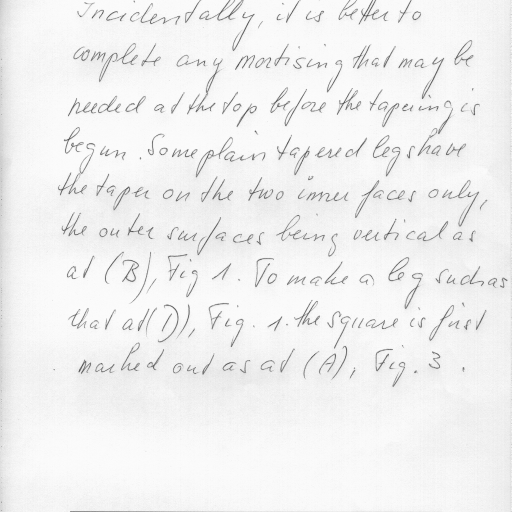 Incidentally, it is better to
complete any mortising that may be
needed at the top before the tapering is
begun. Some plain tapered legs have
the taper on the two inner faces only,
the outer surfaces being vertical as
at (B), Fig 1. To make a leg such as
that at (D), Fig. 1. the square is first
marked out as at (A), Fig. 3 .